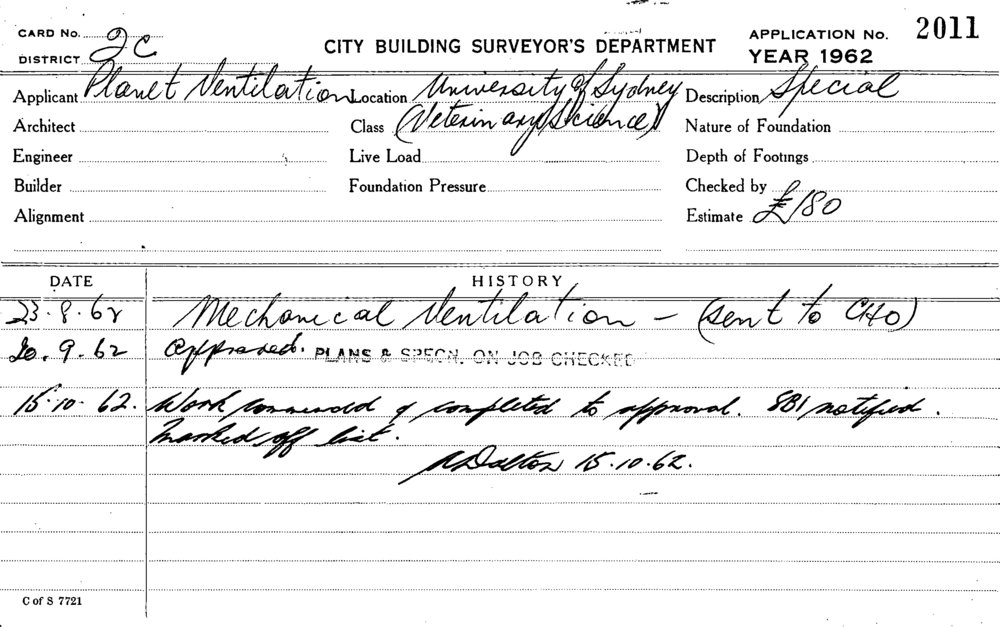 CARD No.
DISTRICT 2C
CITY BUILDING SURVEYOR'S DEPARTMENT
APPLICATION No. 2011
YEAR 1962
Applicant Planet Ventilation Location University of Sydney Description Special
Architect Class (Veterinary Science) Nature of Foundation
Engineer Live Load Depth of Footings
Builder Foundation Pressure Checked by
Alignment Estimate £180
DATE HISTORY
23.8.62 Mechanical Ventilation - (sent to CHO)
20.9.62 Approved. PLANS & SPECN. ON JOB CHECKED
15.10.62. Work commenced & completed to approval. SBI notified.
Marked off list.
Dalton 15.10.62.
C of S 7721